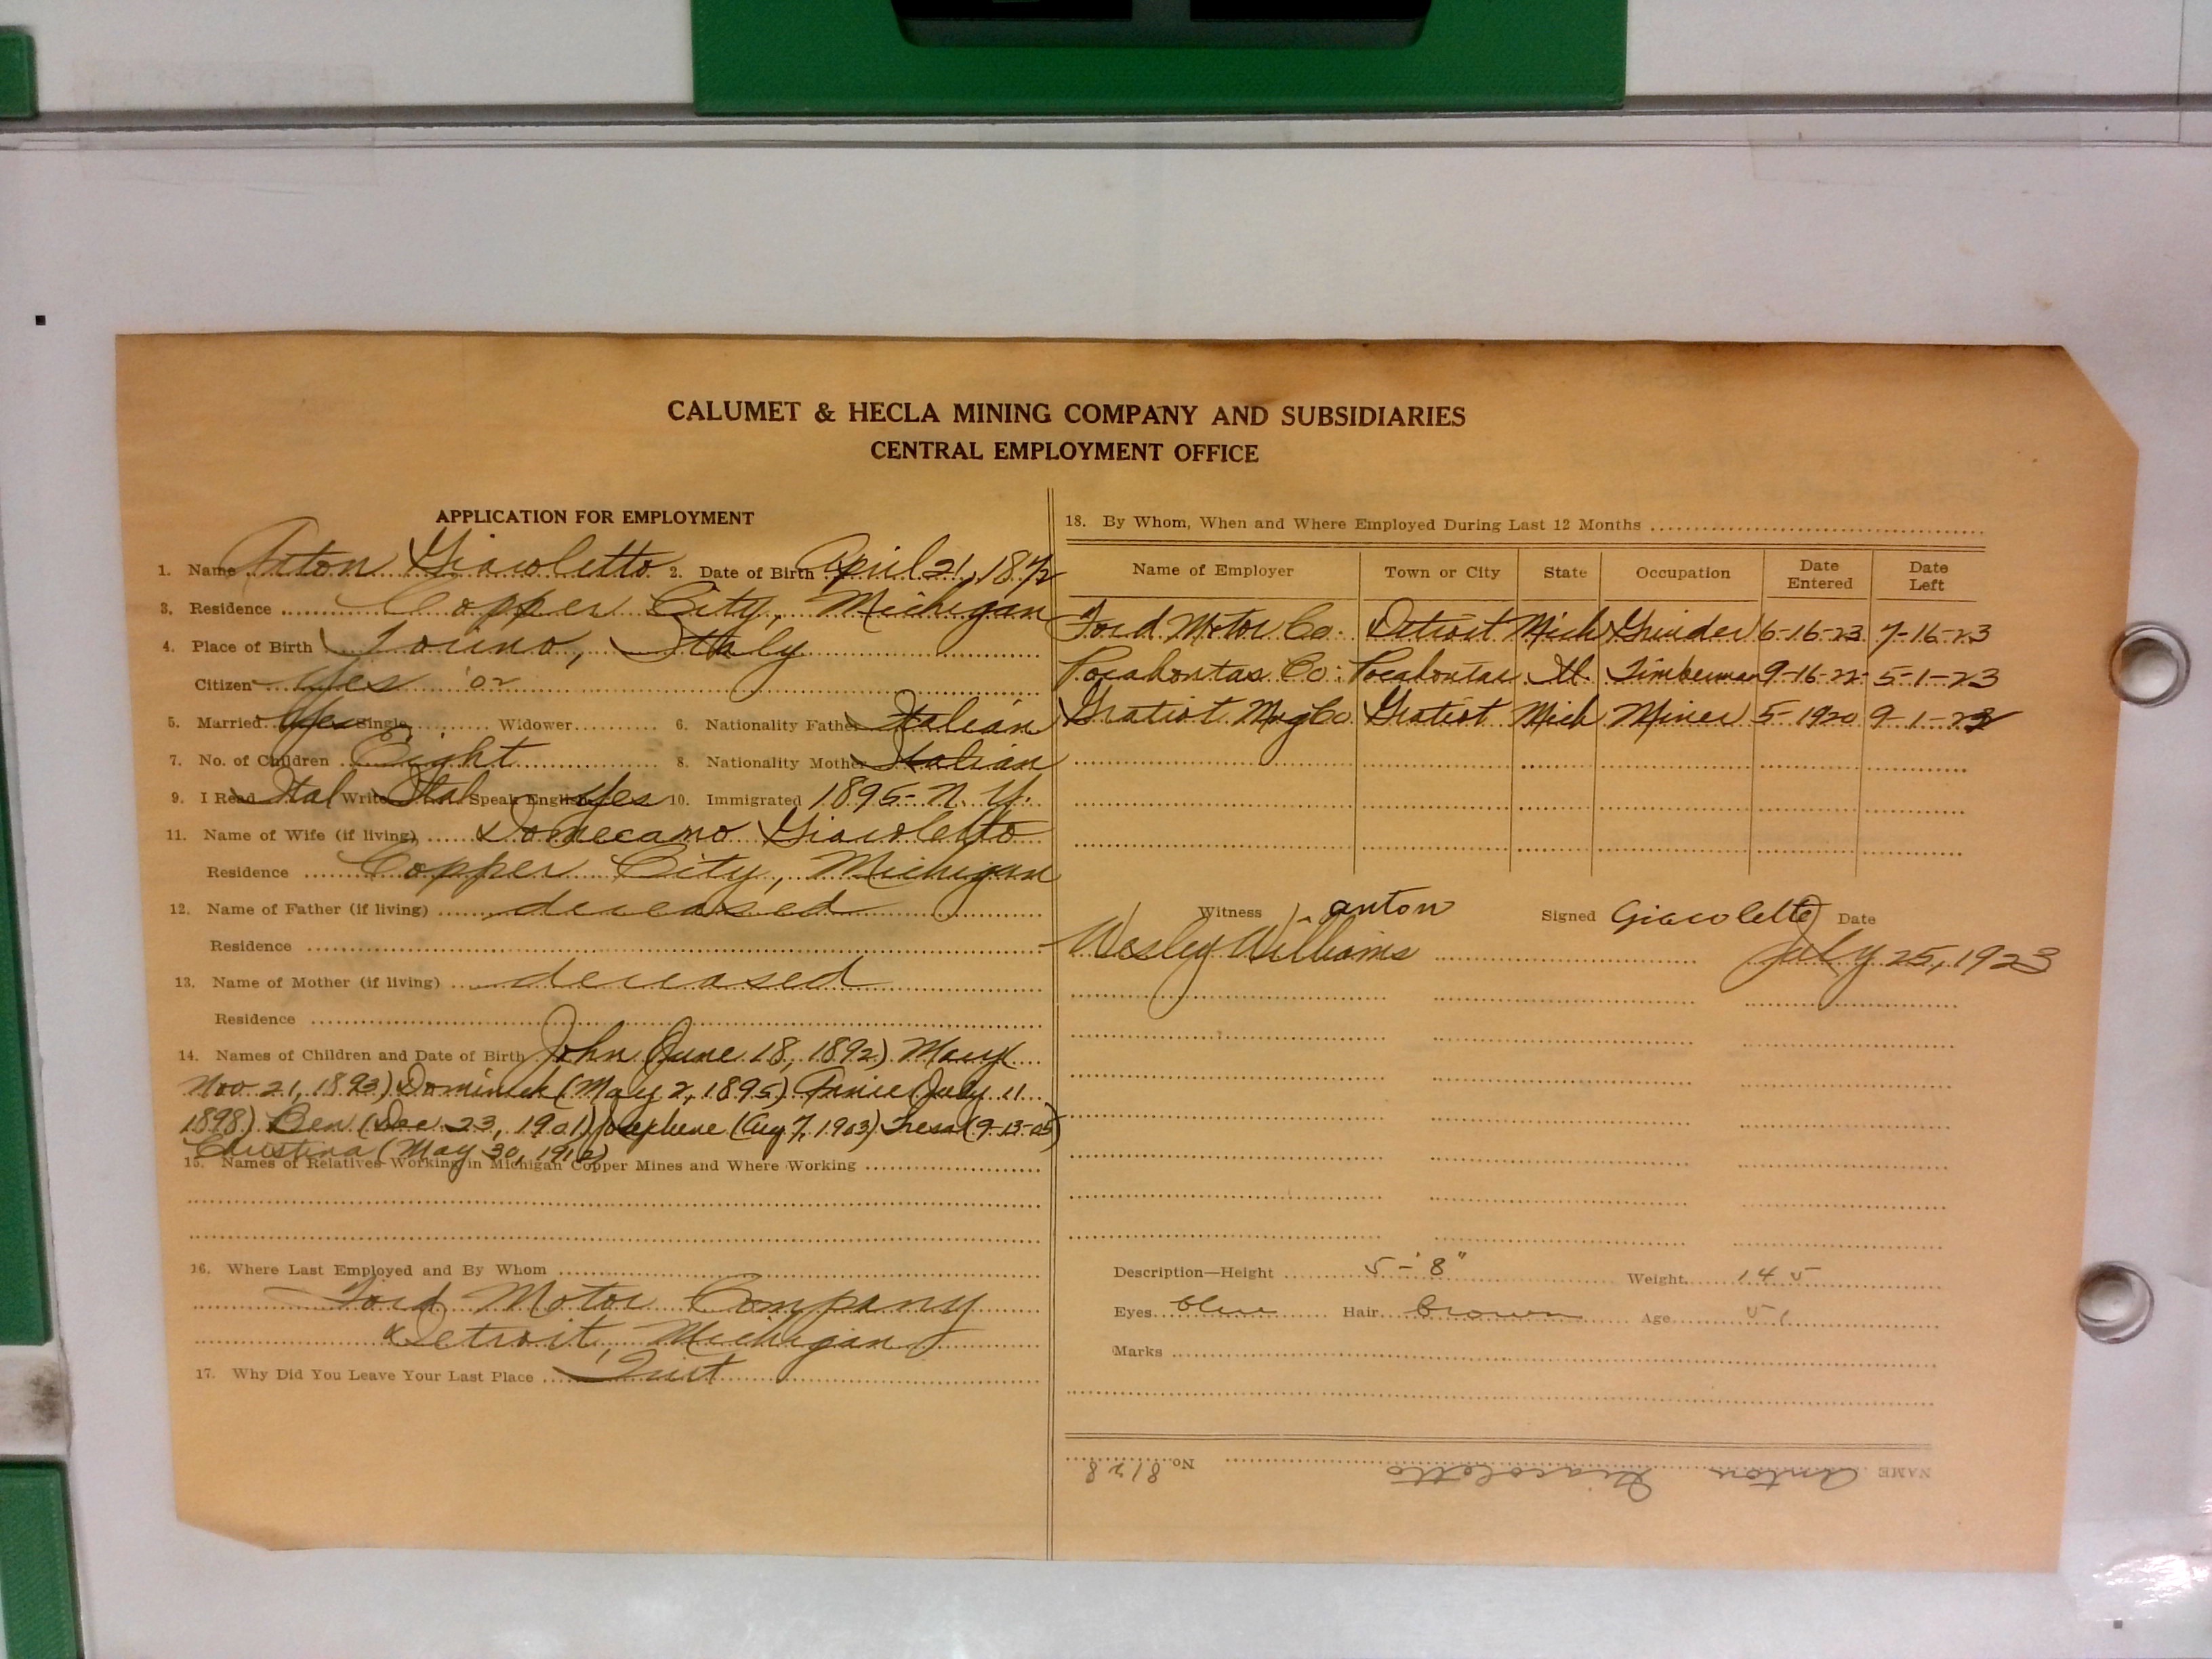 CALUMET & HECLA MINING COMPANY AND SUBSIDIARIES
CENTRAL EMPLOYMENT OFFICE
APPLICATION FOR EMPLOYMENT
1. Name Anton Giacoletto 2. Date of Birth April 21, 1872
3. Residence Copper City, Michigan
4. Place of Birth Torino, Italy
Citizen Yes
5. Married Yes Single Widower 6. Nationality Father Italian
7. No. of Children Eight 8. Nationality Mother Italian
9. I Read Ital Write Ital Speak English Yes 10. Immigrated 1895- N.Y.
11. Name of Wife (if living) Giacoletto
Residence Copper City, Michigan
12. Name of Father (if living) deceased
Residence
13. Name of Mother (if living) deceased
Residence
14. Names of Children and Date of Birth John (June 18, 1892) Mary (
Nov 21, 1893) Dominick (May 2, 1895) Annie (July 11
1898) Ben (Dec 23, 1901) Josephine (Aug 7, 1903) Tresa (9-13-05)
Christina (May 30, 1912)
15. Names of Relatives Working in Michigan Copper Mines and Where Working
16. Where Last Employed and By Whom
Ford Motor Company
Detroit, Michigan
17. Why Did You Leave Your Last Place Quit
18. By Whom, When and Where Employed During Last 12 Months
Name of Employer Town or City State Occupation Date Entered Date Left
Ford Motor Co. Detroit Mich Grinder 6-16-23 7-16-23
Pocahontas Co. Pocahontas Ill. Timberman 9-16-22 5-1-23
Gratiot Mng Co Gratiot Mich Miner 5-1920 9-1-22
Witness anton Signed Giacoletto Date
Wesley Williams July 25, 1923
Description—Height 5-'8" Weight 145
Eyes blue Hair brown Age 51
Marks
NAME Anton Giacoletto No. 8128